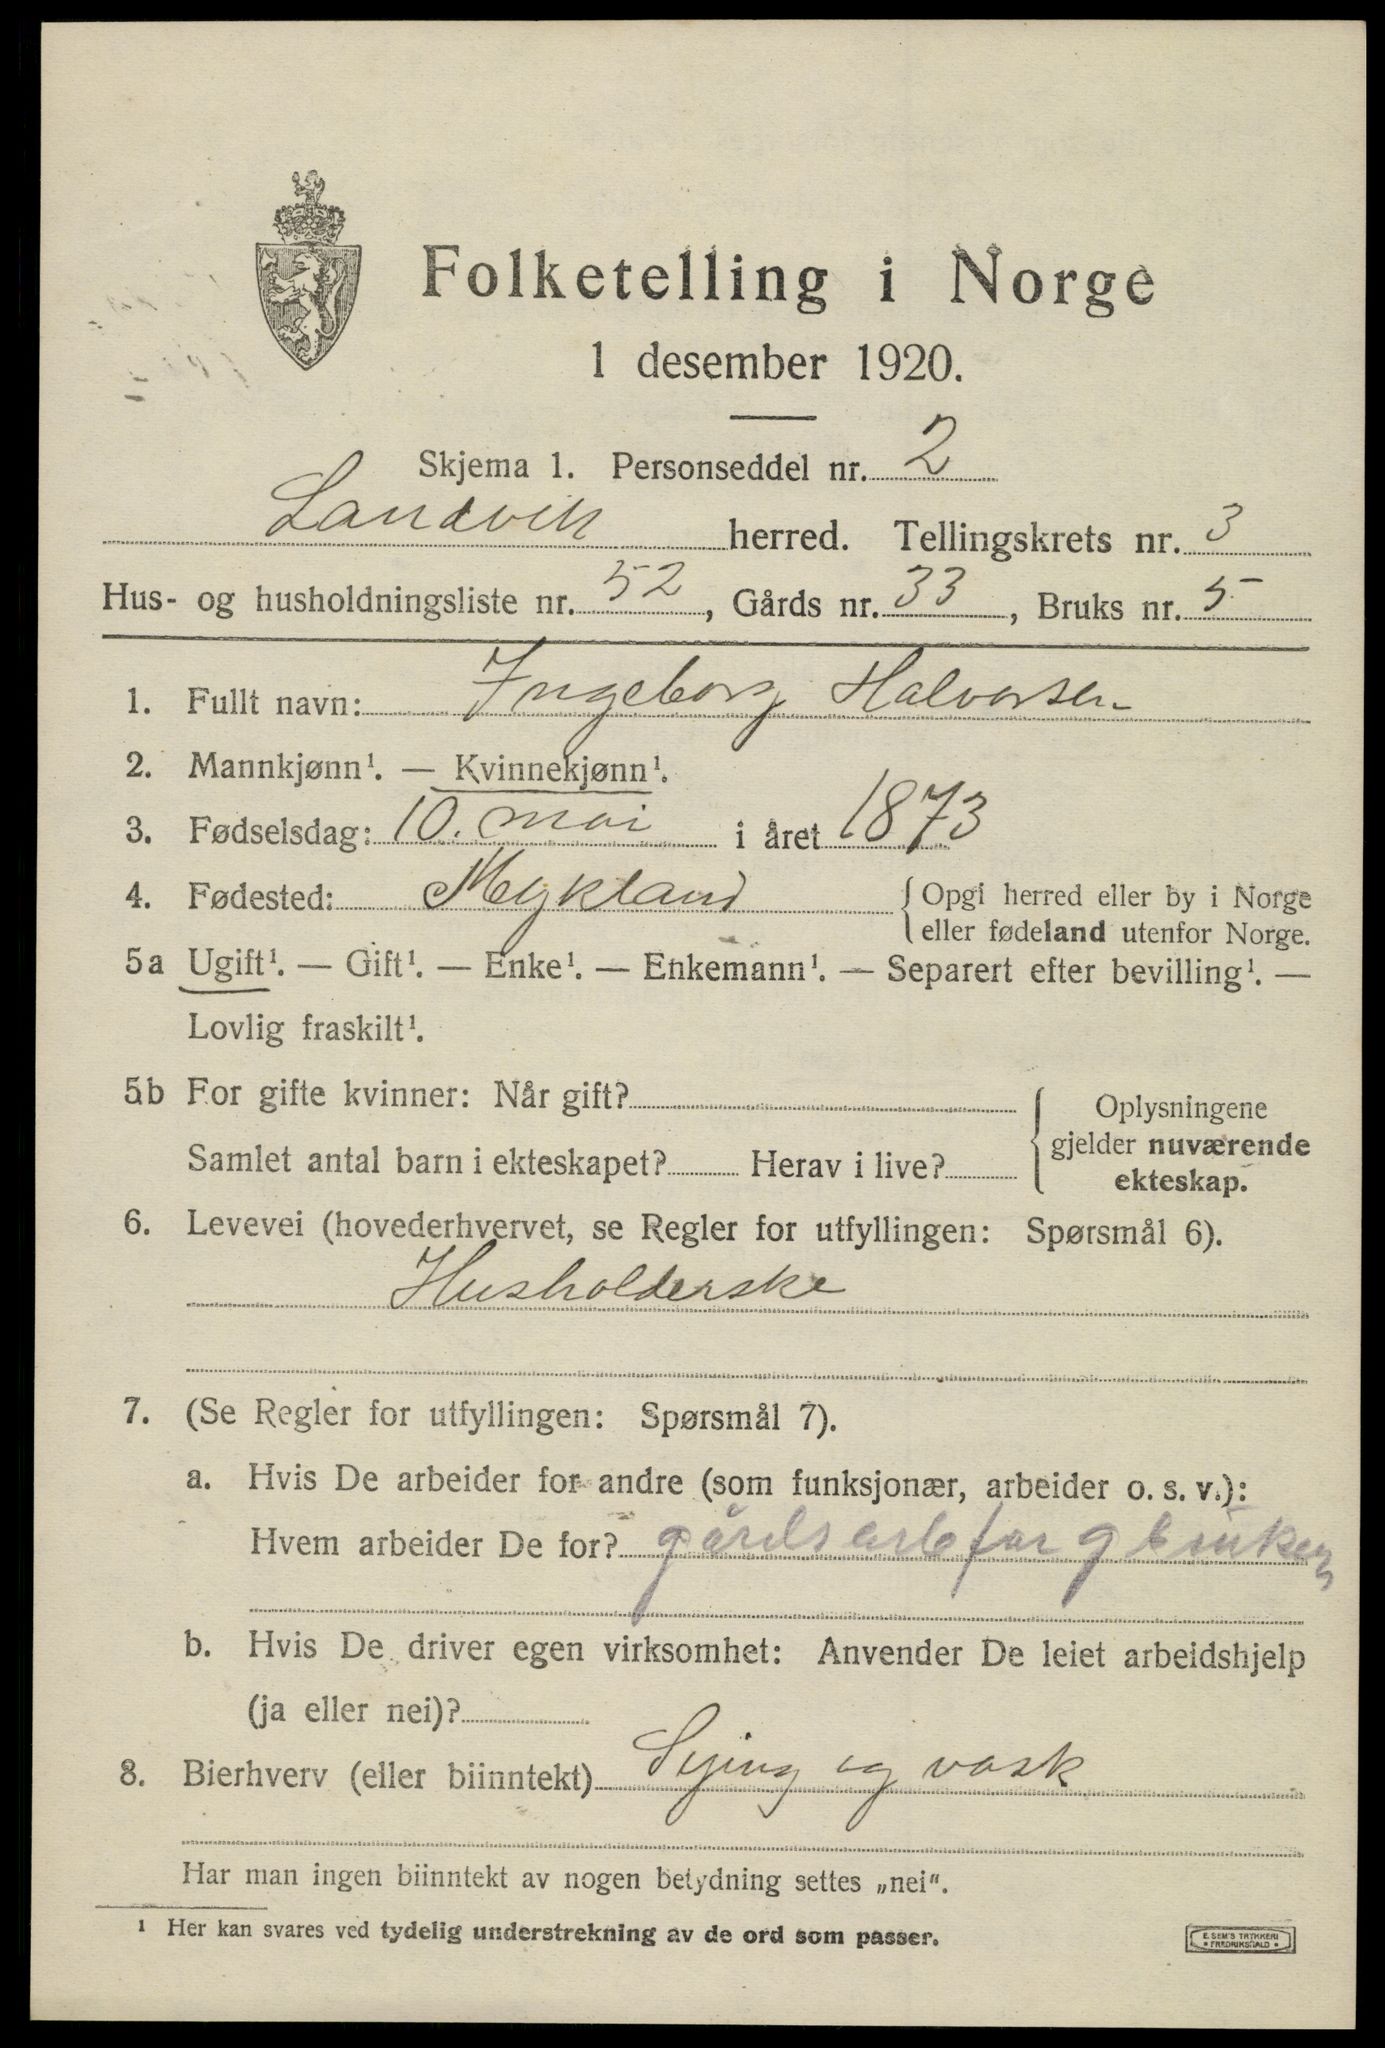 Folketelling i Norge
1 desember 1920.
Skjema 1. Personseddel nr. 2
Landvik herred. Tellingskrets nr. 3
Hus- og husholdningsliste nr. 52, Gårds nr. 33, Bruks nr. 5
1. Fullt navn: Ingeborg Halvorsen
2. Mannkjønn¹. — Kvinnekjønn¹.
3. Fødselsdag: 10. mai i året 1873
4. Fødested: Mykland {Opgi herred eller by i Norge
eller fødeland utenfor Norge.
5a Ugift¹. — Gift¹. — Enke¹. — Enkemann¹. — Separert efter bevilling¹. —
Lovlig fraskilt¹.
5b For gifte kvinner: Når gift?
Samlet antal barn i ekteskapet? Herav i live?
Oplysningene
gjelder nuværende
ekteskap.
6. Levevei (hovederhvervet, se Regler for utfyllingen: Spørsmål 6).
Husholderske
7. (Se Regler for utfyllingen: Spørsmål 7).
a. Hvis De arbeider for andre (som funksjonær, arbeider o. s. v.):
Hvem arbeider De for? gårdsarb for gbruker
b. Hvis De driver egen virksomhet: Anvender De leiet arbeidshjelp
(ja eller nei)?
8. Bierhverv (eller biinntekt) Sying og vask
Har man ingen biinntekt av nogen betydning settes „nei".
¹ Her kan svares ved tydelig understrekning av de ord som passer.
E. SEM'S TRYKKERI
• FREDRIKSHALD •